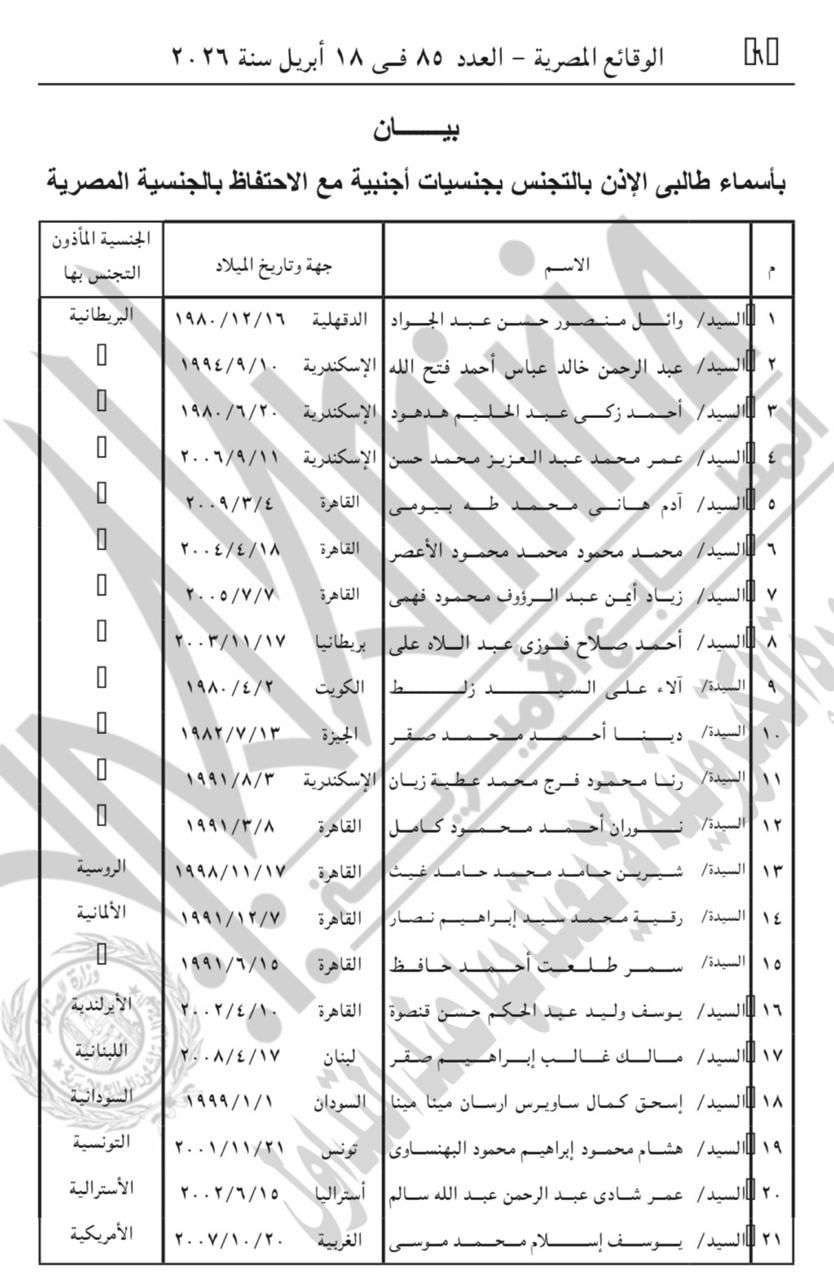 الوقائع المصرية – العدد ٨٥ فى ١٨ أبريل سنة ٢٠٢٦
بيـــــــان
بأسماء طالبى الإذن بالتجنس بجنسيات أجنبية مع الاحتفاظ بالجنسية المصرية
م الاســم جهة وتاريخ الميلاد الجنسية المأذون التجنس بها
١ السيد/ وائل منصور حسن عبد الجواد الدقهلية ١٩٨٠/١٢/١٦ البريطانية
٢ السيد/ عبد الرحمن خالد عباس أحمد فتح الله الإسكندرية ١٩٩٤/٩/١٠
٣ السيد/ أحمد زكى عبد الحليم هدهود الإسكندرية ١٩٨٠/٦/٢٠
٤ السيد/ عمر محمد عبد العزيز محمد حسن الإسكندرية ٢٠٠٦/٩/١١
٥ السيد/ آدم هانى محمد طه بيومى القاهرة ٢٠٠٩/٣/٤
٦ السيد/ محمد محمود محمد محمود الأعصر القاهرة ٢٠٠٤/٤/١٨
٧ السيد/ زياد أيمن عبد الرؤوف محمود فهمى القاهرة ٢٠٠٥/٧/٧
٨ السيد/ أحمد صلاح فوزى عبد اللاه على بريطانيا ٢٠٠٣/١١/١٧
٩ السيدة/ آلاء على السيد زلط الكويت ١٩٨٠/٤/٢
١٠ السيدة/ دينا أحمد محمد صقر الجيزة ١٩٨٢/٧/١٣
١١ السيدة/ رنا محمود فرج محمد عطية زيان الإسكندرية ١٩٩١/٨/٣
١٢ السيدة/ نوران أحمد محمود كامل القاهرة ١٩٩١/٣/٨
١٣ السيدة/ شيرين حامد محمد حامد غيث القاهرة ١٩٩٨/١١/١٧ الروسية
١٤ السيدة/ رقية محمد سيد إبراهيم نصار القاهرة ١٩٩١/١٢/٧ الألمانية
١٥ السيدة/ سمر طلعت أحمد حافظ القاهرة ١٩٩١/٦/١٥
١٦ السيد/ يوسف وليد عبد الحكم حسن قنصوة القاهرة ٢٠٠٢/٤/١٠ الأيرلندية
١٧ السيد/ مالك غالب إبراهيم صقر لبنان ٢٠٠٨/٤/١٧ اللبنانية
١٨ السيد/ إسحق كمال ساويرس ارسان مينا مينا السودان ١٩٩٩/١/١ السودانية
١٩ السيد/ هشام محمود إبراهيم محمود البهنساوى تونس ٢٠٠١/١١/٢١ التونسية
٢٠ السيد/ عمر شادى عبد الرحمن عبد الله سالم أستراليا ٢٠٠٢/٦/١٥ الأسترالية
٢١ السيد/ يوسف إسلام محمد موسى الغربية ٢٠٠٧/١٠/٢٠ الأمريكية